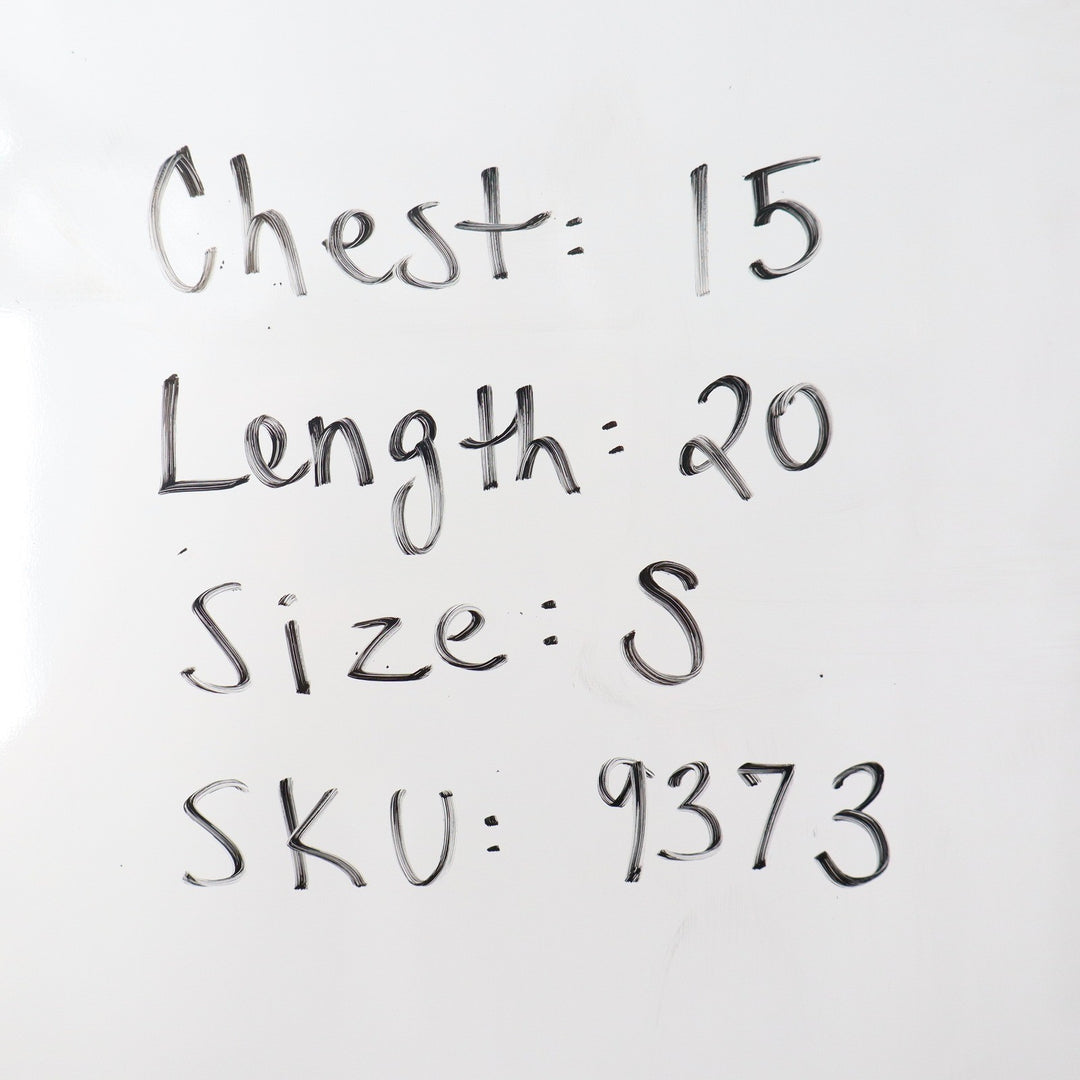 Chest: 15
Length: 20
Size: S
SKU: 9373